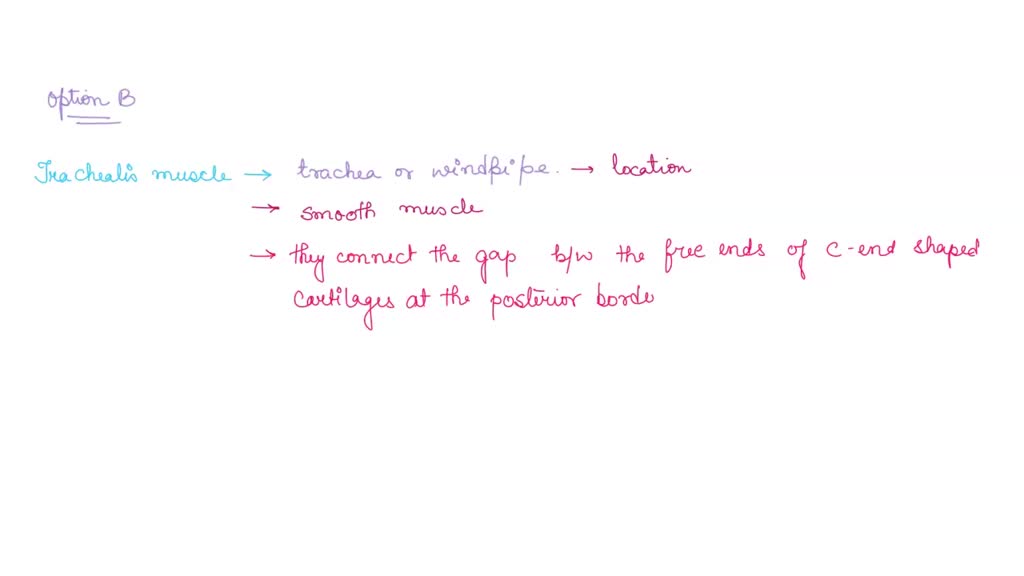 option B
Trachealis muscle → trachea or windpipe. → location
→ smooth muscle
→ they connect the gap b/w the free ends of C-end shaped
cartilages at the posterior borde